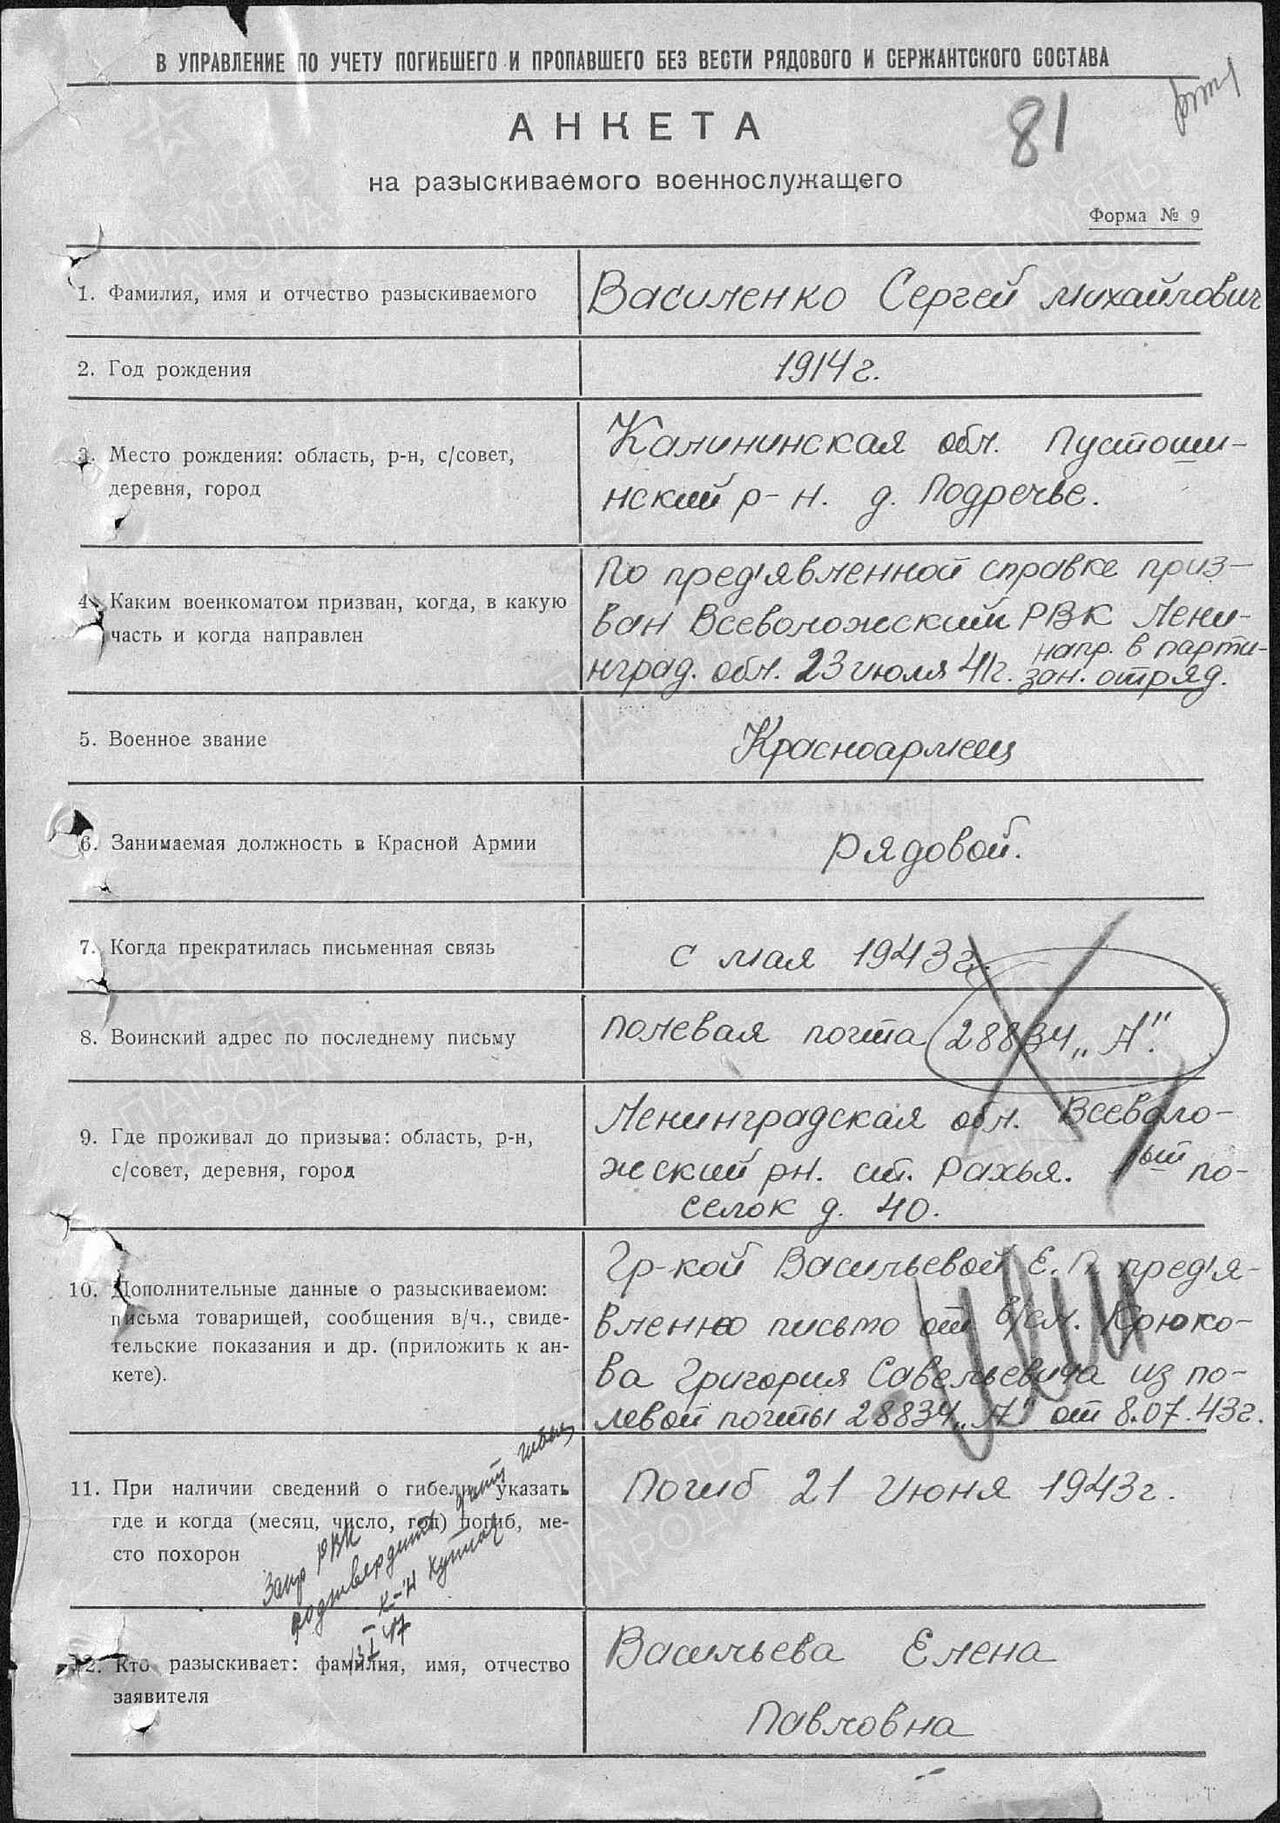 В УПРАВЛЕНИЕ ПО УЧЕТУ ПОГИБШЕГО И ПРОПАВШЕГО БЕЗ ВЕСТИ РЯДОВОГО И СЕРЖАНТСКОГО СОСТАВА
81
АНКЕТА
на разыскиваемого военнослужащего
Форма № 9
1. Фамилия, имя и отчество разыскиваемого
Василенко Сергей Михайлович
2. Год рождения
1914 г.
3. Место рождения: область, р-н, с/совет,
деревня, город
Калининская обл. Пустоши-
нский р-н. д. Подречье.
4. Каким военкоматом призван, когда, в какую
часть и когда направлен
По пред'явленной справке приз-
ван Всеволожским РВК Лени-
нград. обл. 23 июля 41г. напр. в парти-
зан. отряд.
5. Военное звание
Красноармеец
6. Занимаемая должность в Красной Армии
Рядовой.
7. Когда прекратилась письменная связь
с мая 1943г.
8. Воинский адрес по последнему письму
полевая почта 28834 „А".
9. Где проживал до призыва: область, р-н,
с/совет, деревня, город
Ленинградская обл. Всеволо-
жский рн. ст. Рахья. 1ый по-
селок д. 40.
10. Дополнительные данные о разыскиваемом:
письма товарищей, сообщения в/ч., свиде-
тельские показания и др. (приложить к ан-
кете).
Гр-кой Васильевой Е. П. пред'я-
влено письмо от в/сл. Крюко-
ва Григория Савельевича из по-
левой почты 28834 „А" от 8.07.43г.
11. При наличии сведений о гибели указать
где и когда (месяц, число, год) погиб, ме-
сто похорон
Погиб 21 июня 1943г.
Запр РВК
подтвердить дату гибели
к-н
47
12. Кто разыскивает: фамилия, имя, отчество
заявителя
Васильева Елена
Павловна
ПАМЯТЬ
НАРОДА